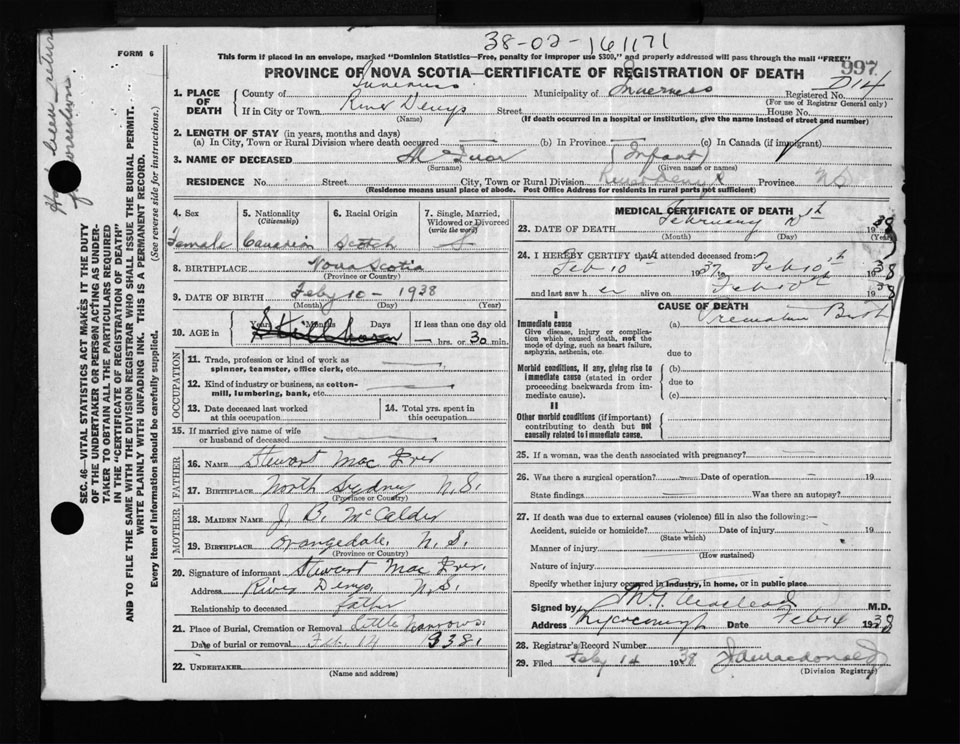 38-02-161171
FORM 6
This form if placed in an envelope, marked "Dominion Statistics—Free, penalty for improper use $300," and properly addressed will pass through the mail "FREE"
997
PROVINCE OF NOVA SCOTIA—CERTIFICATE OF REGISTRATION OF DEATH
1. PLACE OF DEATH
County of Inverness Municipality of Inverness Registered No. D14
(For use of Registrar General only)
If in City or Town River Denys Street House No.
(Name) (If death occurred in a hospital or institution, give the name instead of street and number)
2. LENGTH OF STAY (in years, months and days)
(a) In City, Town or Rural Division where death occurred (b) In Province (c) In Canada (if immigrant)
3. NAME OF DECEASED (Infant)
(Surname) (Given name or names)
RESIDENCE No. Street City, Town or Rural Division River Denys Province NS
(Residence means usual place of abode. Post Office Address for residents in rural parts not sufficient)
4. Sex
Female
5. Nationality
(Citizenship)
Canadian
6. Racial Origin
Scotch
7. Single, Married, Widowed or Divorced
(write the word)
S
8. BIRTHPLACE Nova Scotia
(Province or Country)
9. DATE OF BIRTH Feby 10 - 1938
(Month) (Day) (Year)
10. AGE in Years Months Days If less than one day old
Stillborn
hrs. or 30 min.
OCCUPATION
11. Trade, profession or kind of work as
spinner, teamster, office clerk, etc.
12. Kind of industry or business, as cotton-
mill, lumbering, bank, etc.
13. Date deceased last worked
at this occupation
14. Total yrs. spent in
this occupation
15. If married give name of wife
or husband of deceased
FATHER
16. NAME Stewart Mac Iver
17. BIRTHPLACE North Sydney N.S.
(Province or Country)
MOTHER
18. MAIDEN NAME J. B. McCalder
19. BIRTHPLACE Orangedale, N.S.
(Province or Country)
20. Signature of informant Stewart Mac Iver.
Address River Denys, N.S.
Relationship to deceased father
21. Place of Burial, Cremation or Removal Little Narrows.
Date of burial or removal Feb. 14 1938
22. UNDERTAKER
(Name and address)
MEDICAL CERTIFICATE OF DEATH
23. DATE OF DEATH February 10th 1938
(Month) (Day) (Year)
24. I HEREBY CERTIFY that I attended deceased from:
Feb 10th 1937 to Feb 10th 1938
and last saw h er alive on Feb 10th 1938
CAUSE OF DEATH
I
Immediate cause
Give disease, injury or complica-
tion which caused death, not the
mode of dying, such as heart failure,
asphyxia, asthenia, etc.
(a) Premature Birth
due to
Morbid conditions, if any, giving rise to
immediate cause (stated in order
proceeding backwards from im-
mediate cause).
(b)
due to
(c)
II
Other morbid conditions (if important)
contributing to death but not
causally related to immediate cause.
25. If a woman, was the death associated with pregnancy?
26. Was there a surgical operation? Date of operation 19
State findings Was there an autopsy?
27. If death was due to external causes (violence) fill in also the following:—
Accident, suicide or homicide? Date of injury 19
(State which)
Manner of injury
(How sustained)
Nature of injury
Specify whether injury occurred in industry, in home, or in public place
Signed by MacLeod M.D.
Address Whycocomagh Date Feb 14 1938
28. Registrar's Record Number
29. Filed Feby 14 1938
(Division Registrar)
SEC. 46—VITAL STATISTICS ACT MAKES IT THE DUTY
OF THE UNDERTAKER OR PERSON ACTING AS UNDER-
TAKER TO OBTAIN ALL THE PARTICULARS REQUIRED
IN THE "CERTIFICATE OF REGISTRATION OF DEATH"
AND TO FILE THE SAME WITH THE DIVISION REGISTRAR WHO SHALL ISSUE THE BURIAL PERMIT.
WRITE PLAINLY WITH UNFADING INK. THIS IS A PERMANENT RECORD.
Every item of Information should be carefully supplied. (See reverse side for instructions.)